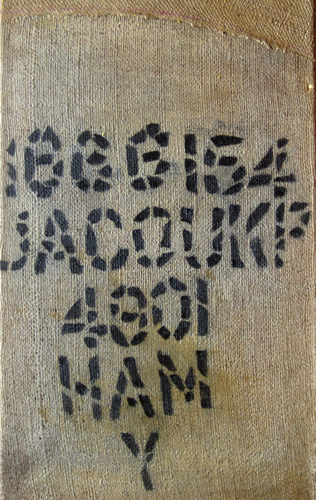 1866154
JACOUKP
4901
HAM
Y